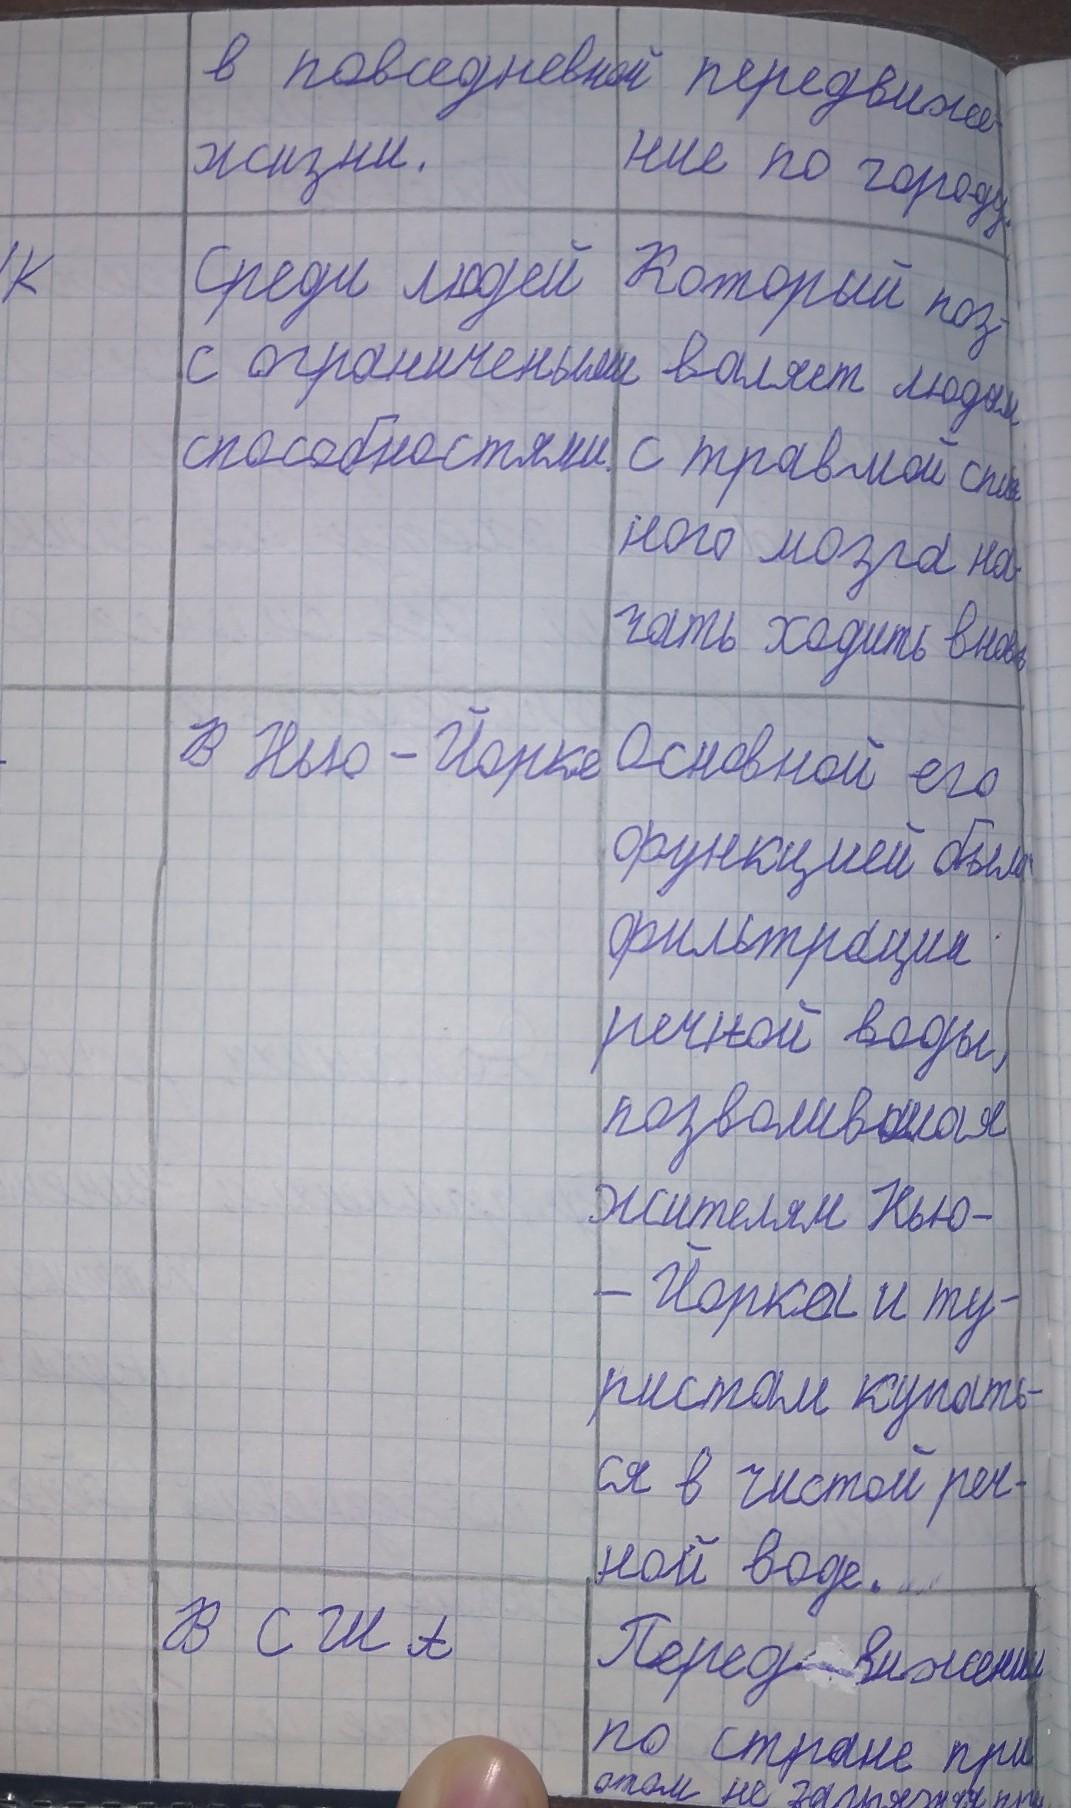 в повседневной
жизни.
передвиже-
ние по городу.
К
Среди людей
с ограниченными
способностями.
Который поз-
валяет людям
с травмой спин
ного мозга на-
чать ходить вновь
В Нью-Йорке
Основной его
функцией была
фильтрации
речной воды,
позволившая
жителям Нью-
-Йорка и ту-
ристам купать-
ся в чистой реч-
ной воде.
В США
Передвижении
по стране при
этом не загрязняя